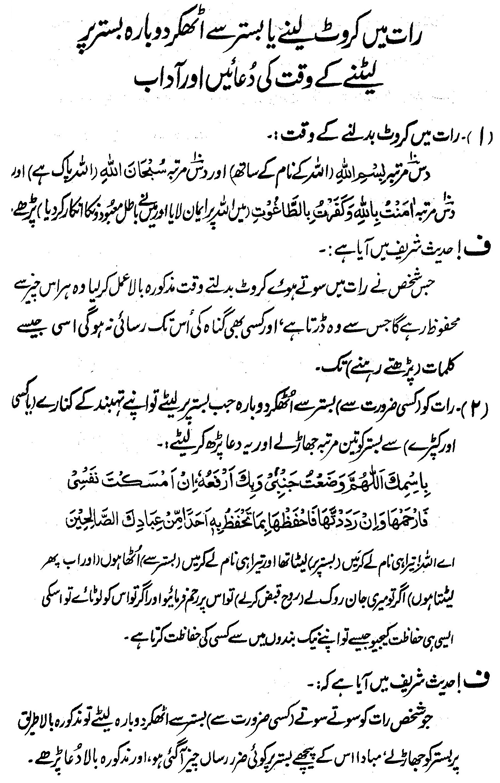 رات میں کروٹ لینے یا بستر سے اٹھکر دوبارہ بستر پر
لیٹنے کے وقت کی دُعائیں اور آداب
(۱)۔ رات میں کروٹ بدلنے کے وقت :۔
دسؔ مرتبہ بِسْمِ اللهِ (اللہ کے نام کے ساتھ) اور دسؔ مرتبہ سُبْحَانَ اللهِ (اللہ پاک ہے) اور
دسؔ مرتبہ اٰمَنْتُ بِاللهِ وَكَفَرْتُ بِالطَّاغُوْتِ (میں اللہ پر ایمان لایا اور میں نے باطل معبودوں کا انکار کر دیا) پڑھے۔
ف! حدیث شریف میں آیا ہے :۔
جس شخص نے رات میں سوتے ہوئے کروٹ بدلتے وقت مذکورہ بالا عمل کر لیا وہ ہر اس چیز سے
محفوظ رہے گا جس سے وہ ڈرتا ہے، اور کسی بھی گناہ کی اُس تک رسائی نہ ہو گی اسی جیسے
کلمات (پڑھتے رہنے) تک۔
(۲)۔ رات کو (کسی ضرورت سے) بستر سے اُٹھکر دوبارہ جب بستر پر لیٹے تو اپنے تہبند کے کنارے (یا کسی
اور کپڑے) سے بستر کو تین مرتبہ جھاڑ لے اور یہ دعا پڑھ کر لیٹے :۔
بِاسْمِكَ اللّٰهُمَّ وَضَعْتُ جَنْبِيْ وَبِكَ اَرْفَعُهٗ، اِنْ اَمْسَكْتَ نَفْسِيْ
فَارْحَمْهَا وَاِنْ رَدَدْتَّهَا فَاحْفَظْهَا بِمَا تَحْفَظُ بِهٖ اَحَدًا مِّنْ عِبَادِكَ الصَّالِحِيْنَ
اے اللہ! تیرا ہی نام لے کر میں (بستر پر) لیٹا تھا اور تیرا ہی نام لے کر میں (بستر سے) اُٹھا ہوں (اور اب پھر
لیٹتا ہوں) اگر تو میری جان روک لے (روح قبض کر لے) تو اس پر رحم فرمائیو اور اگر تو اس کو لوٹائے تو اسکی
ایسی ہی حفاظت کیجیو جیسے تو اپنے نیک بندوں میں سے کسی کی حفاظت کرتا ہے۔
ف! حدیث شریف میں آیا ہے کہ :۔
جو شخص رات کو سوتے سوتے (کسی ضرورت سے) بستر سے اٹھکر دوبارہ لیٹے تو مذکورہ بالا طریق
پر بستر کو جھاڑ لے، مبادا اس کے پیچھے بستر پر کوئی ضرر رساں چیز آ گئی ہو، اور مذکورہ بالا دعا پڑھے۔